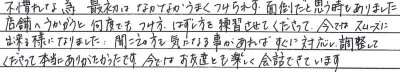 不慣れな為 最初はなかなかうまくつけられず 面倒だと思う時もありました
店舗へうかがうと何度でも つけ方、はずし方を練習させてくださって、今ではスムーズに
出来る様になりました。聞こえ方も気になる事があればすぐに対応し調整して
くださって本当にありがたかったです 今ではお友達とも楽しく会話できています